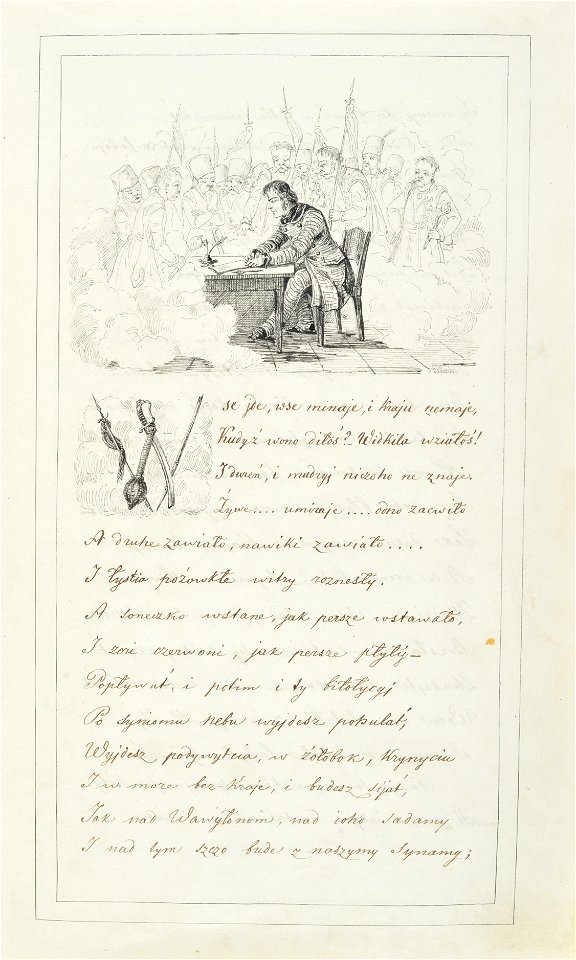 Wse jde, wse minaje, i kraju nemaje,
Kudyż wono diłoś? - Widkila wziałoś!
I dureń, i mudryj niczoho ne znaje.
Żywe.... umiraje.... odno zacwiło
A druhe zawiało, nawiki zawiało....
I łystia pożowkłe witry roznesły.
A soneczko wstane, jak persze wstawało,
I zori czerwoni, jak persze płyły -
Popływut', i potim i ty biłołycyj
Po syniomu nebu wyjdesz pohulat',
Wyjdesz podywytcia, w żołobok, krynyciu
I w more bez kraje, i budesz sijat',
Jak nad Wawyłonom, nad ioho sadamy
I nad tym szczo bude z naszymy synamy;